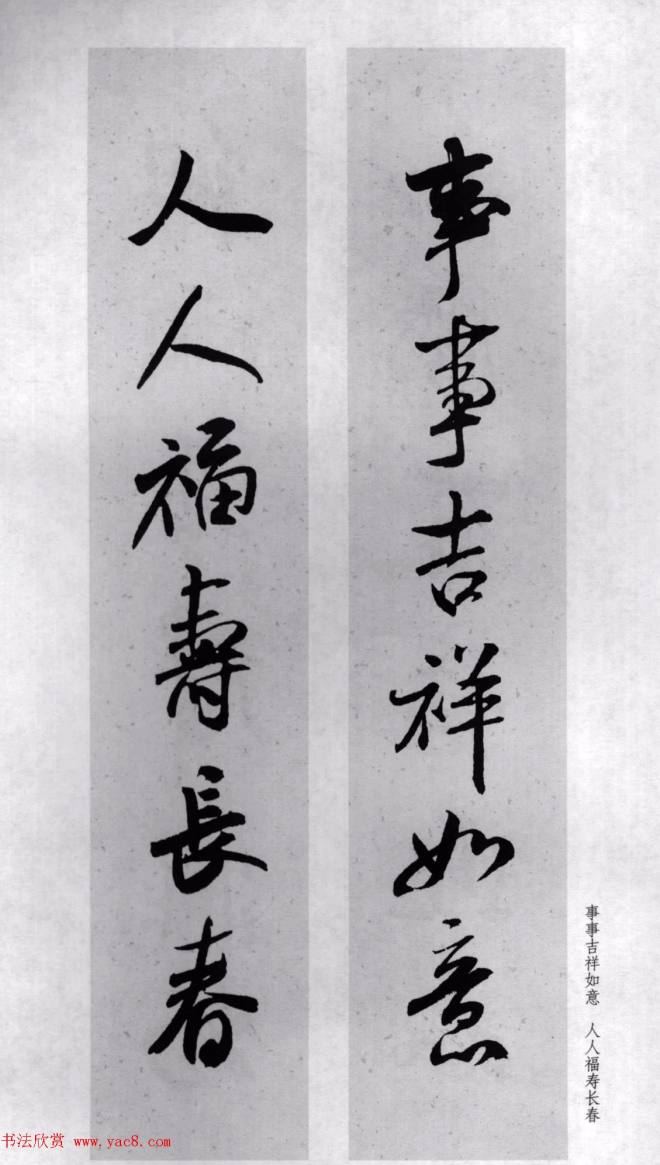 事事吉祥如意
人人福壽長春
事事吉祥如意 人人福寿长春
书法欣赏 www.yac8.com